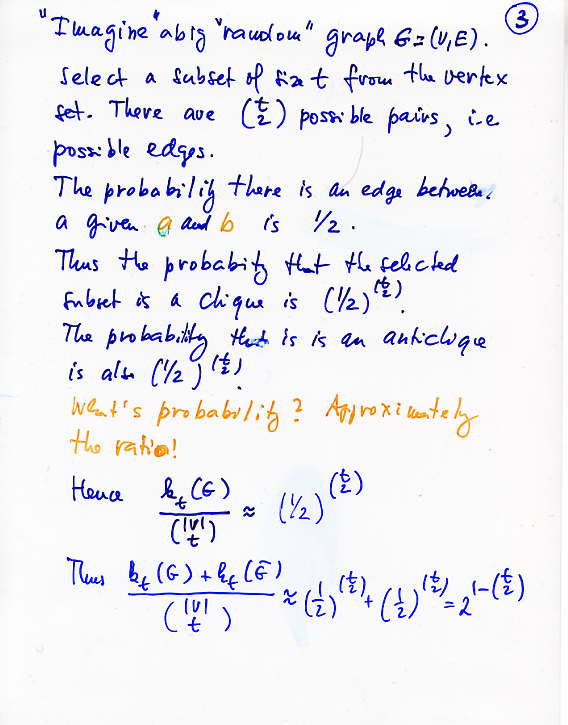 ③
"Imagine" a big "random" graph G=(V,E).
Select a subset of size t from the vertex
set. There are (t 2) possible pairs, i.e
possible edges.
The probability there is an edge between
a given a and b is 1/2.
Thus the probabity that the selected
subset is a clique is (1/2)^(t 2).
The probability that is is an anticlique
is also (1/2)^(t 2).
What's probability? Approximately
the ratio!
Hence k_t(G) / (|V| t) ≈ (1/2)^(t 2)
Thus k_t(G) + k_t(Ḡ) / (|V| t) ≈ (1/2)^(t 2) + (1/2)^(t 2) = 2^1-(t 2)